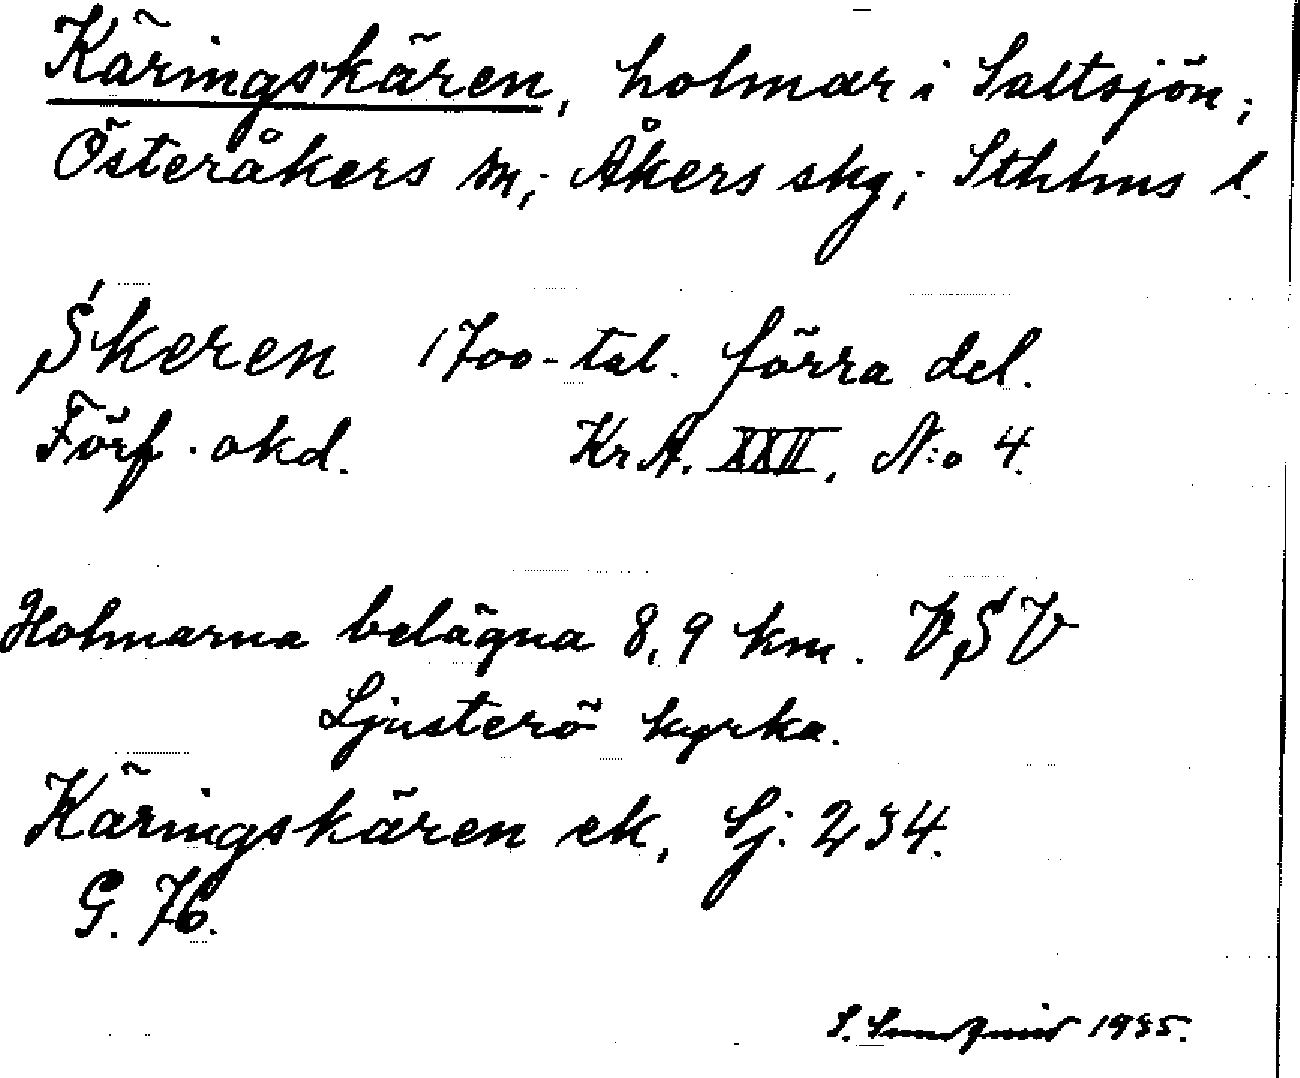 Käringskären, holmar i Saltsjön,
Österåkers sn; Åkers skg; Sthlms l.
Skeren 1700-tal. förra del.
Förf. okd. Kr.A. XXII, N:o 4.
Holmarna belägna 8,9 km. VSV
Ljusterö kyrka.
Käringskären ek, Sj: 234.
G. 76.
S. 1935.